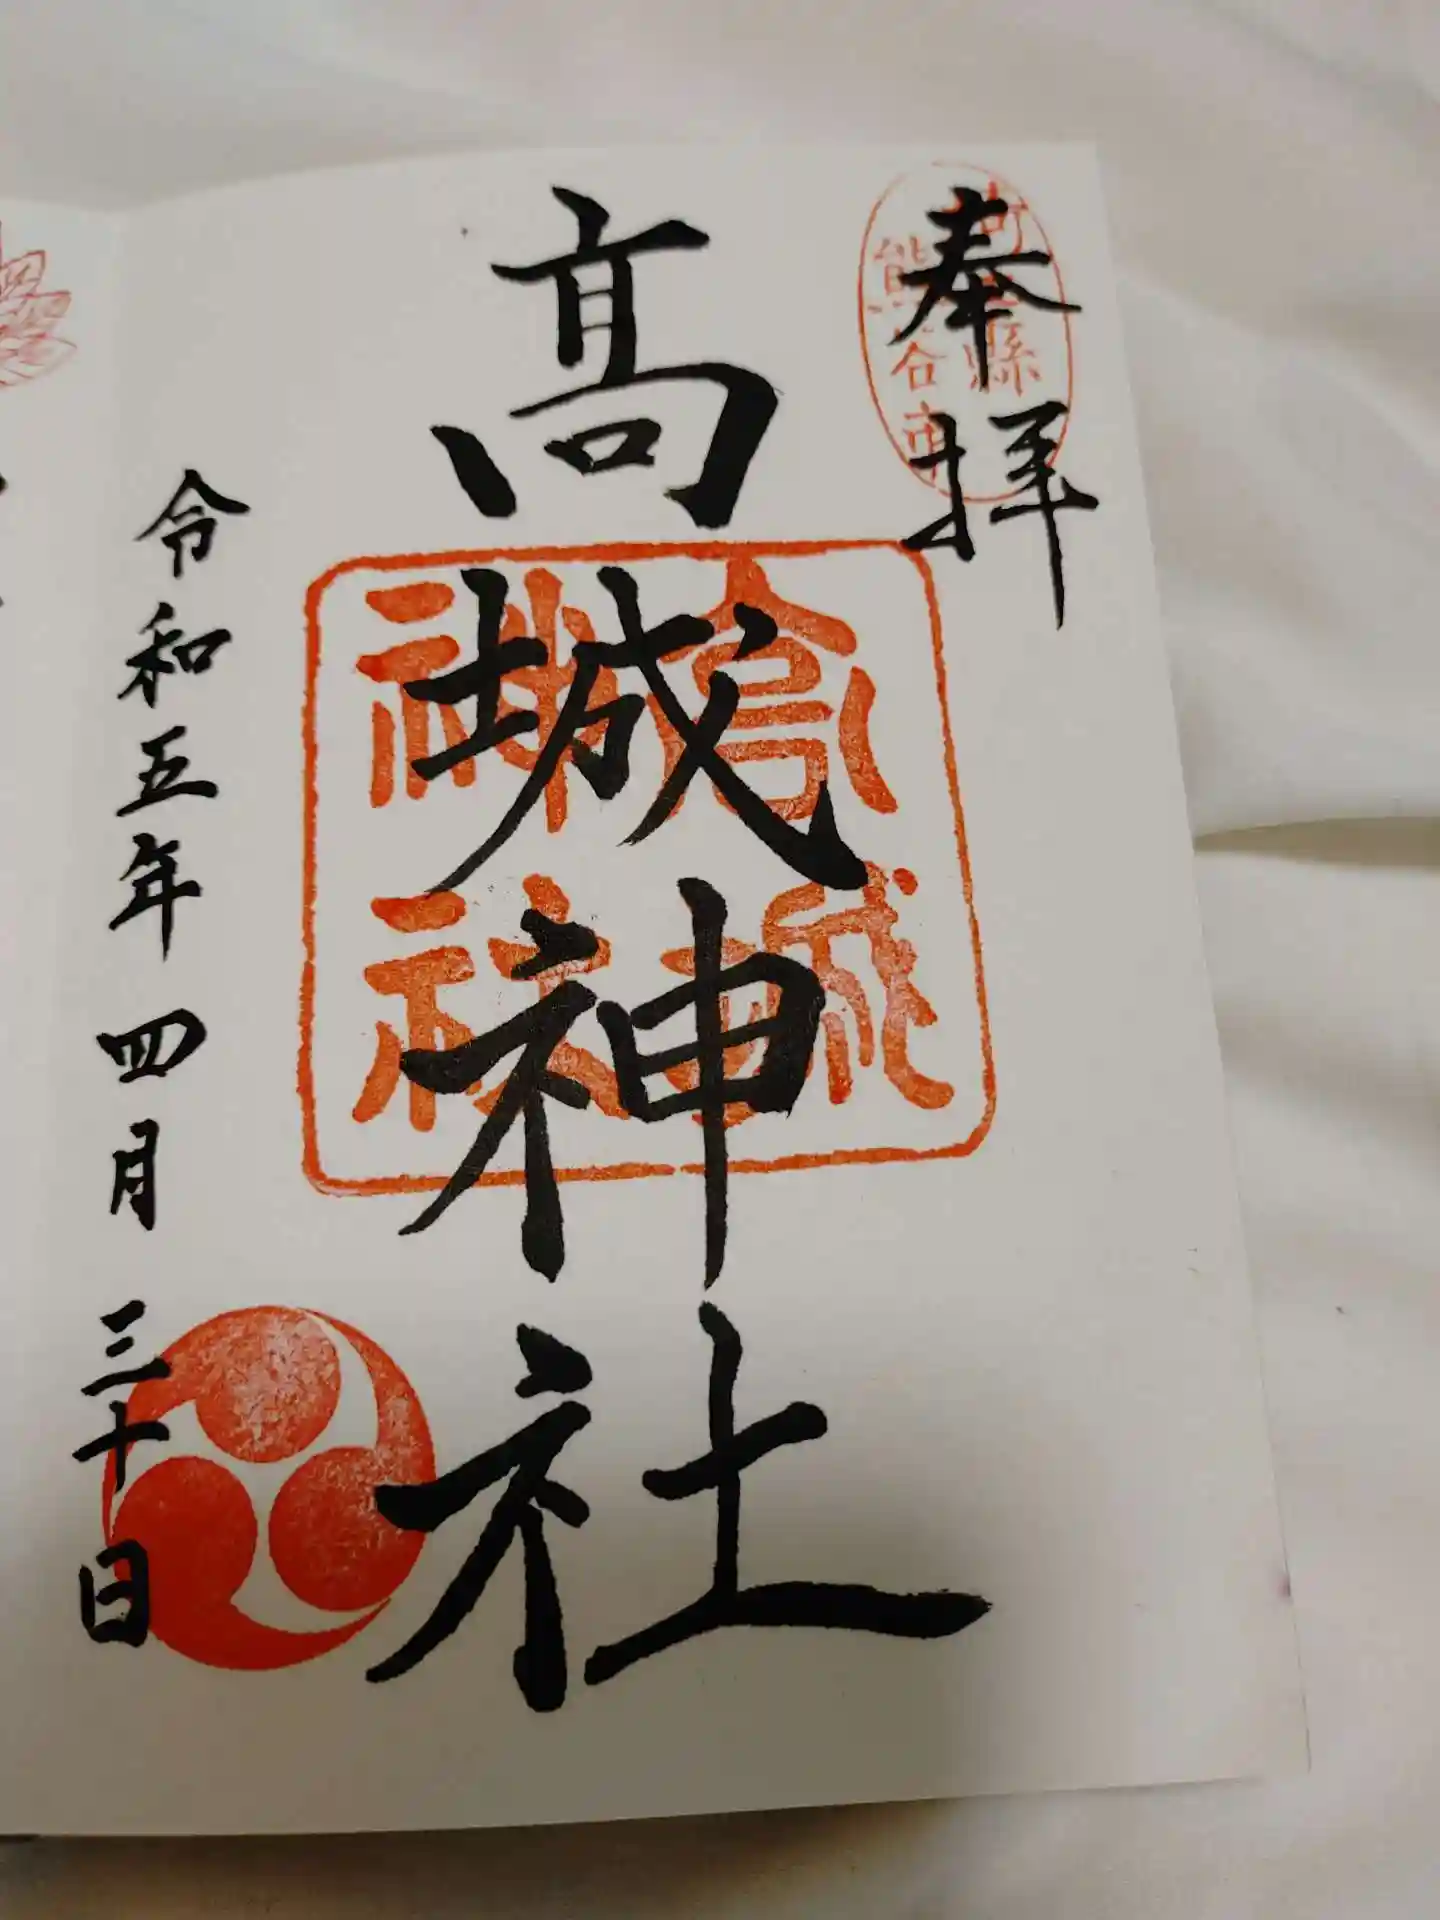 奉拝
埼玉縣
熊谷市
髙城神社
高城
神社
令和五年四月三十日